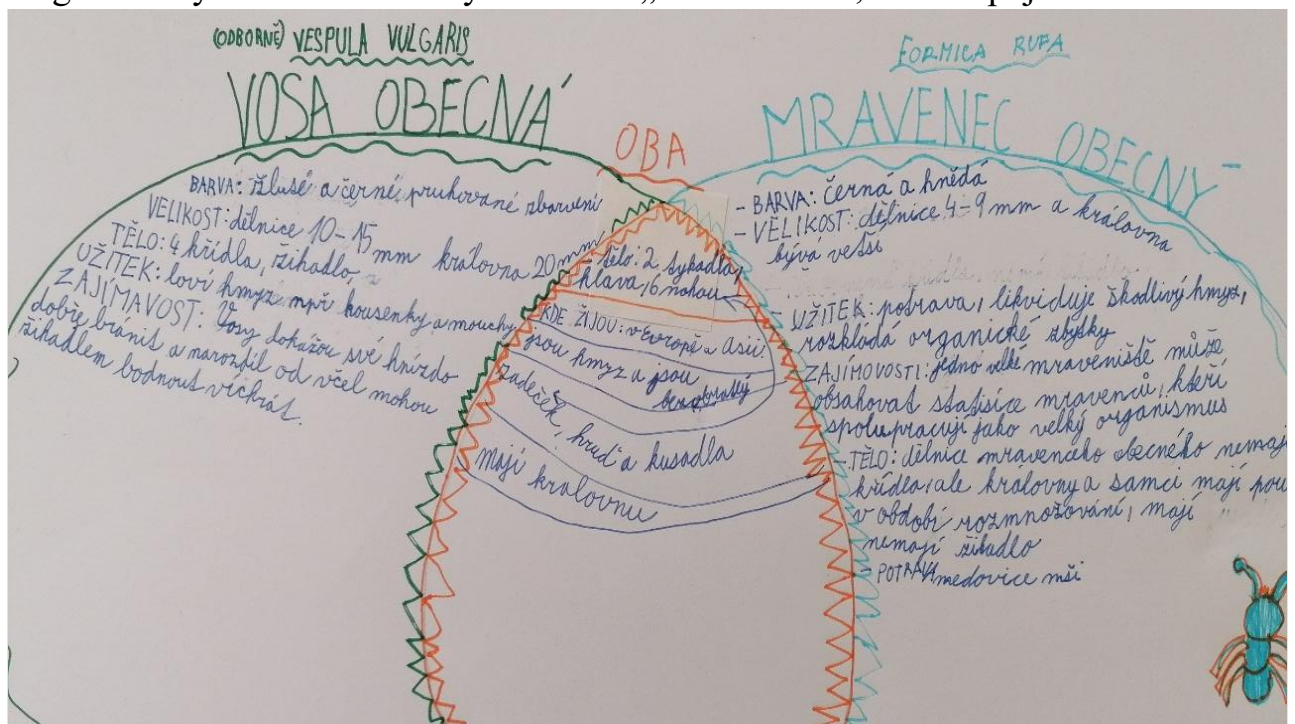 (ODBORNĚ) VESPULA VULGARIS
VOSA OBECNÁ
BARVA: žluté a černé, pruhované zbarvení
VELIKOST: dělnice 10-15 mm královna 20 mm
TĚLO: 4 křídla, žihadlo,
UŽITEK: loví hmyz např housenky a mouchy
ZAJÍMAVOST: Vosy dokážou své hnízdo
dobře bránit a narozdíl od včel mohou
žihadlem bodnout víckrát.
OBA
- tělo: 2 tykadla,
hlava, 6 nohou
KDE ŽIJOU: v Evropě a Asii
jsou hmyz a jsou
bezobratlý
zadeček, hruď a kusadla
mají kralovnu
FORMICA RUFA
MRAVENEC OBECNÝ
- BARVA: černá a hnědá
- VĚLIKOST: dělnice 4-9 mm a královna
bývá vetší
- UŽITEK: potrava, likviduje škodlivý hmyz,
rozkládá organické zbytky
- ZAJÍMOVOSTI: jedno velké mraveniště může
obsahovat statisíce mravenců, kteří
spolupracují jako velký organismus
- TĚLO: dělnice mravenceho obecného nemají
křídla, ale královny a samci mají pou
v období rozmnožování, mají
nemají žihadlo
- POTRAVA medovice mši